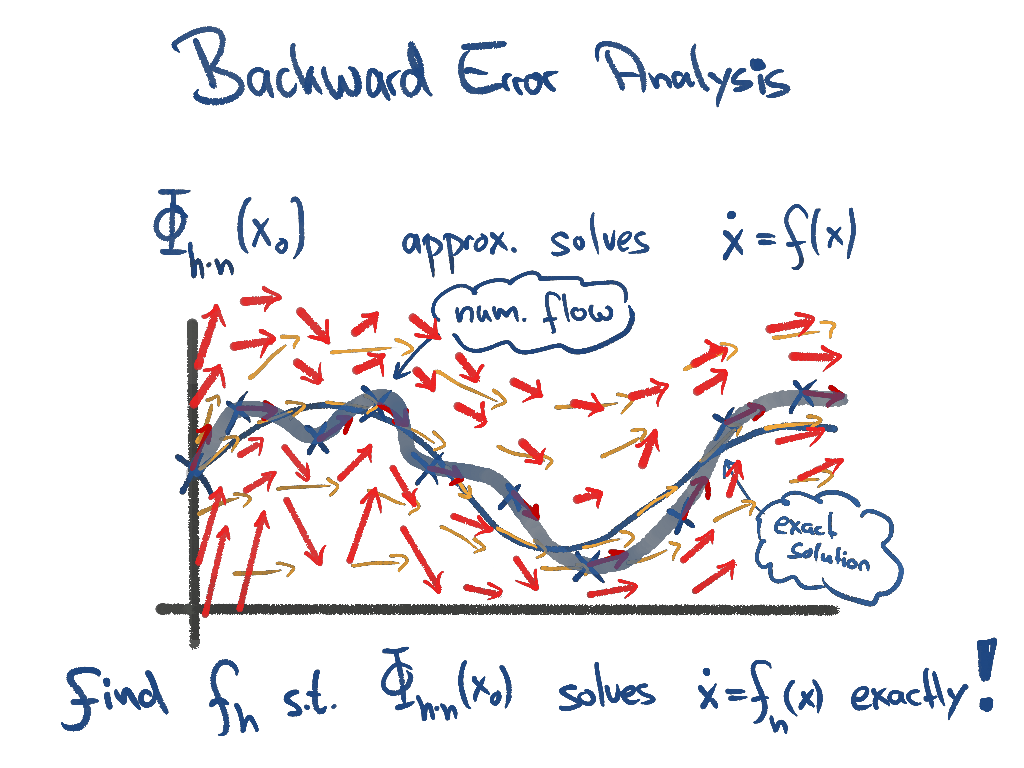 Backward Error Analysis
Φh·n (x0) approx. solves ẋ = f(x)
num. flow
exact
solution
find fh s.t. Φh·n(x0) solves ẋ = fh(x) exactly!